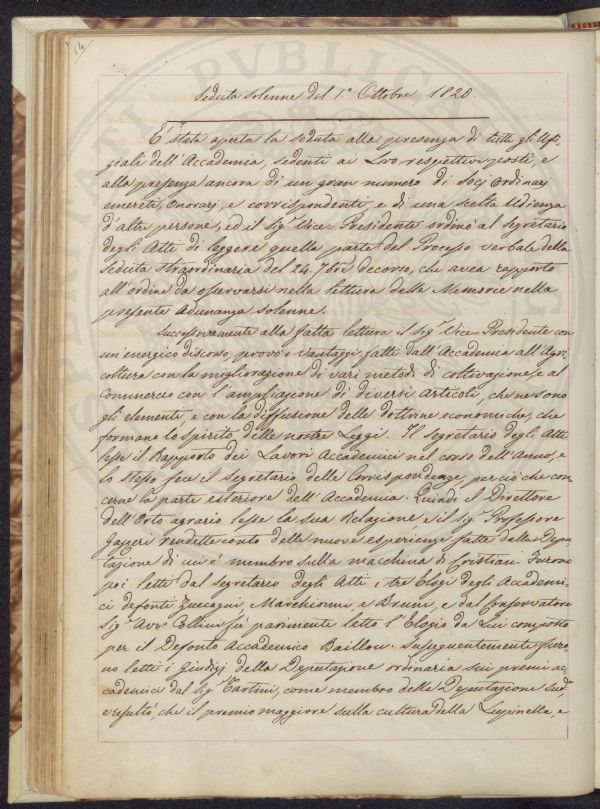 14.
Seduta solenne del 1.° Ottobre 1820
E' stata aperta la seduta alla presenza di tutti gli Ufi-
ziali dell'Accademia, sedenti ai Loro respettivi posti, e
alla presenza ancora di un gran numero di Socj Ordinarj
emeriti, Onorarj, e corrispondenti e di una scelta Udienza
d'altre persone, ed il Sig.r Vice-Presidente ordinò al Segretario
degli Atti di leggere quella parte del Processo verbale della
Seduta straordinaria del 24. 7bre decorso, che avea rapporto
all'ordine da osservarsi nella lettura delle Memorie nella
presente Adunanza solenne.
Successivamente alla fatta lettura il Sig.r Vice-Presidente con
un energico discorso provò i vantaggi fatti dall'Accademia all'Agri-
coltura con la migliorazione di varj metodi di coltivazione, e al
Commercio con l'ampliazione di diversi Articoli, che ne sono
gli elementi, e con la diffusione delle dottrine economiche, che
formano lo spirito delle nostre Leggi. Il Segretario degli Atti
lesse il Rapporto dei Lavori Accademici nel corso dell'Anno, e
lo stesso fece il Segretario delle Corrispondenze, per ciò che con-
cerne la parte esteriore dell'Accademia. Quindi il Direttore
dell'Orto agrario lesse la sua Relazione, e il Sig.r Professore
Gazzeri rendette conto delle nuove esperienze fatte dalla Depu-
tazione di cui è membro sulla macchina di Cristian. Furono
poi letti dal Segretario degli Atti i tre Elogj degli Accademi-
ci defonti Zuccagni, Marchionni, e Bruni, e dal Conservatore
Sig.r Avv.o Collini fù parimente letto l'Elogio da Lui composto
per il Defonto Accademico Baillou. Susseguentemente furo-
no letti i Giudizj della Deputazione ordinaria sui premi ac-
cademici dal Sig.r Tartini, come membro della Deputazione sud.a
e resultò, che il premio maggiore sulla cultura della Lupinella, e